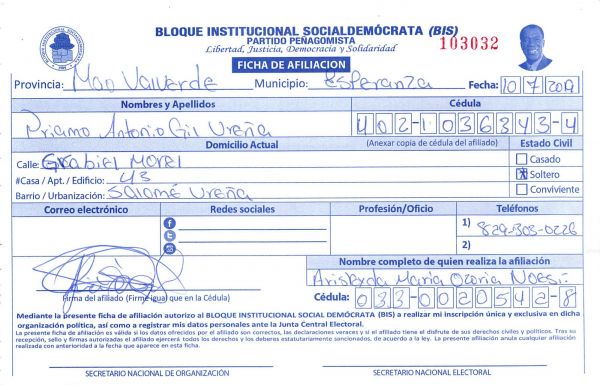 BLOQUE INSTITUCIONAL SOCIALDEMÓCRATA (BIS)
PARTIDO PEÑAGOMISTA
Libertad, Justicia, Democracia y Solidaridad
103032
FICHA DE AFILIACION
Provincia: Mao Valverde Municipio: Esperanza Fecha: 10 7 2019
Nombres y Apellidos Cédula
Priamo Antonio Gil Ureña 402-1036343-4
Domicilio Actual (Anexar copia de cédula del afiliado) Estado Civil
Calle: Grabiel Morel Casado
#Casa / Apt. / Edificio: 43 Soltero
Barrio / Urbanización: Salomé Ureña Conviviente
Correo electrónico Redes sociales Profesión/Oficio Teléfonos
1) 829-303-0226
2)
Nombre completo de quien realiza la afiliación
María Ozoria
Firma del afiliado (Firme igual que en la Cédula) Cédula: 033-0020542-8
Mediante la presente ficha de afiliación autorizo al BLOQUE INSTITUCIONAL SOCIAL DEMÓCRATA (BIS) a realizar mi inscripción única y exclusiva en dicha
organización política, así como a registrar mis datos personales ante la Junta Central Electoral.
La presente ficha de afiliación es válida si los datos ofrecidos por el afiliado son correctos, las declaraciones veraces y si el afiliado tiene el disfrute de sus derechos civiles y políticos. Tras su
recepción, sello y firmas autorizadas el afiliado ejercerá todos los derechos y los deberes estatutariamente sancionados, de acuerdo a la ley. La presente afiliación anula cualquier afiliación
realizada con anterioridad a la fecha que aparece en esta ficha.
SECRETARIO NACIONAL DE ORGANIZACIÓN SECRETARIO NACIONAL ELECTORAL